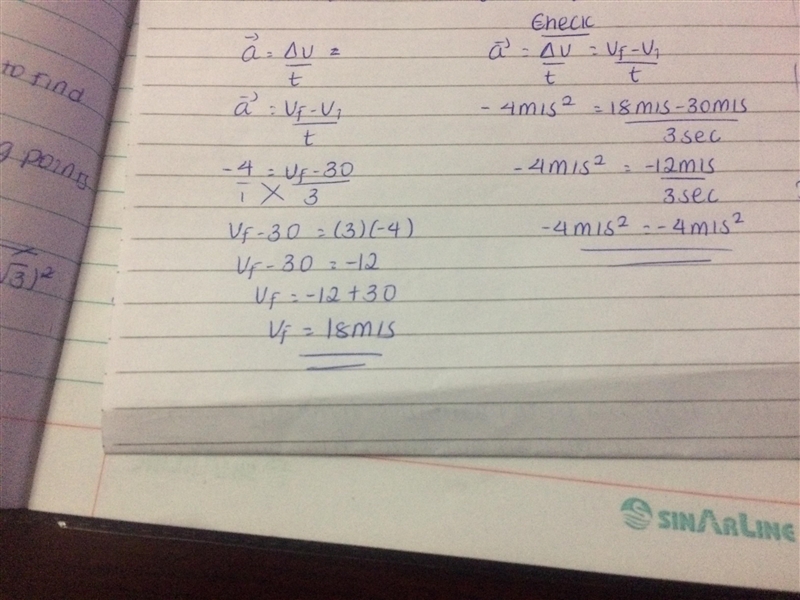 to find
g points
√3)²
a⃗ = Δv =
t
a⃗ = Vf - V1
t
-4 = Vf - 30
1 3
Vf - 30 = (3)(-4)
Vf - 30 = -12
Vf = -12 + 30
Vf = 18m/s
Check
a⃗ = Δv = Vf - V1
t t
-4m/s² = 18m/s - 30m/s
3sec
-4m/s² = -12m/s
3sec
-4m/s² = -4m/s²
SINARLINE